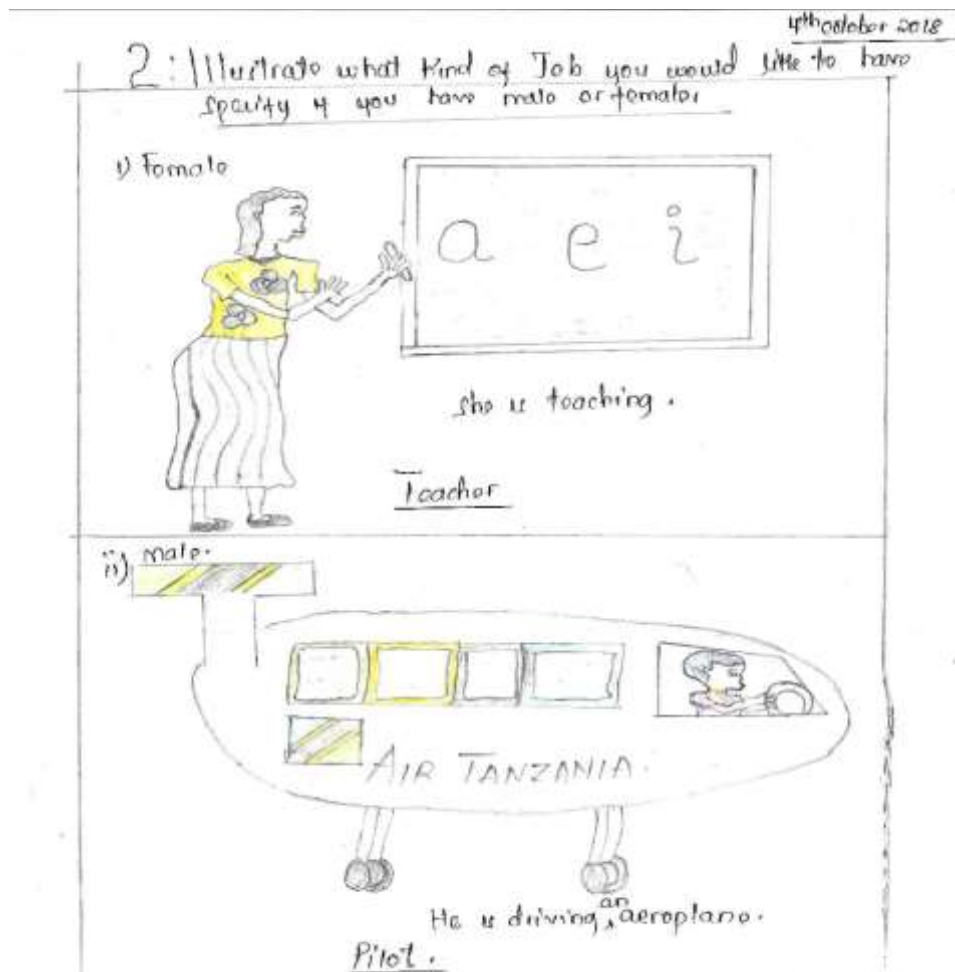 4th october 2018
2: Illustrate what kind of Job you would like to have
specify if you have male or female.
i) Female
a e i
she is teaching.
Teacher
ii) male.
AIR TANZANIA.
He is driving an aeroplane.
Pilot.